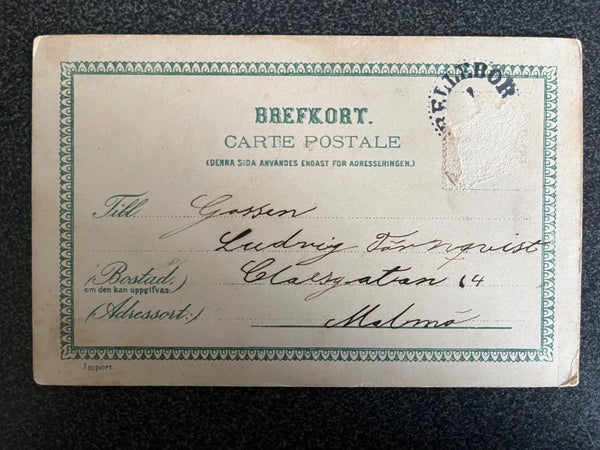 BREFKORT.
CARTE POSTALE
(DENNA SIDA ANVÄNDES ENDAST FÖR ADRESSERINGEN.)
Till Gossen
Ludvig Törnqvist
(Bostad,) Claesgatan 14
om den kan uppgifvas:
(Adressort:) Malmö
Import.